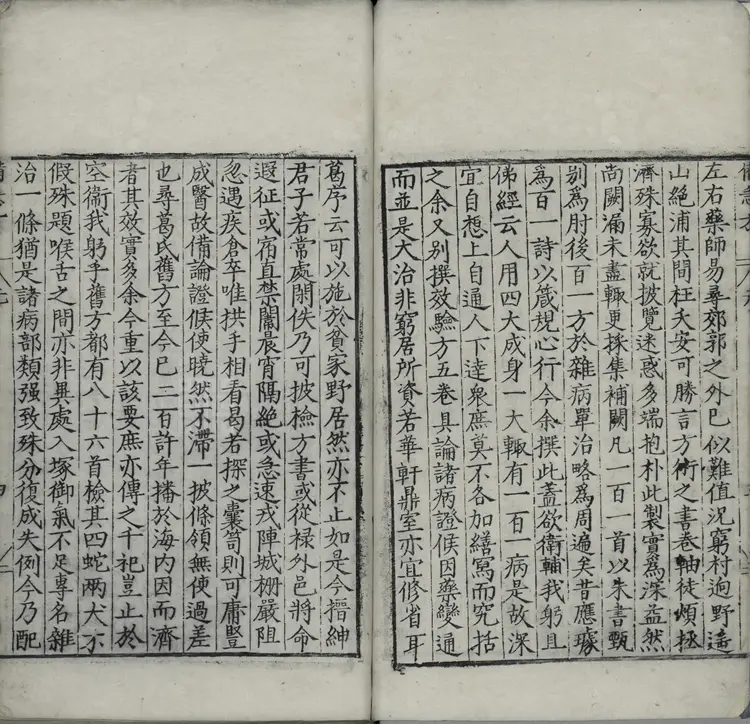 左右藥師易尋郊郭之外已似難值況窮村迥野遥
山絶浦其間枉夭安可勝言方術之書卷軸徒煩拯
濟殊寡欲就披覽迷惑多端抱朴此製實為深益然
尚闕漏未盡輙更採集補闕凡一百一首以朱書甄
别為肘後百一方於雜病單治略為周遍矣昔應璩
為百一詩以箴規心行今余撰此蓋欲衛輔我躬且
佛經云人用四大成身一大輙有一百一病是故深
宜自想上自通人下達衆庶莫不各加繕寫而究括
之余又别撰效驗方五卷具論諸病證候因藥變通
而並是大治非窮居所資若華軒鼎室亦宜修省耳
葛序云可以施於貧家野居然亦不止如是今搢紳
君子若常處閑佚乃可披檢方書或從禄外邑將命
遐征或宿直禁闈晨宵隔絶或急速戎陣城栅嚴阻
忽遇疾倉卒唯拱手相看曷若探之囊笥則可庸豎
成醫故備論證候使曉然不滯一披條領無使過差
也尋葛氏舊方至今已二百許年播於海内因而濟
者其效實多余今重以該要庶亦傳之千祀豈止於
空衞我躬乎舊方都有八十六首檢其四蛇兩犬不
假殊題喉舌之間亦非異處入塚御氣不足專名雜
治一條猶是諸病部類强致殊分復成失例今乃配